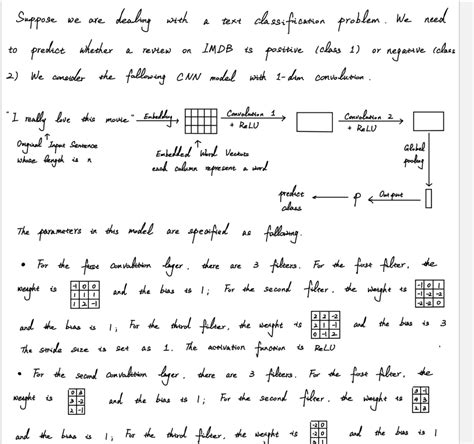 Suppose we are dealing with a text classification problem. We need
to predict whether a review on IMDB is positive (class 1) or negative (class
2) We consider the following CNN model with 1-dim convolution.
"I really love this movie" Embedding Convolution 1 + ReLU Convolution 2 + ReLU
Original Input Sentence
whose length is n
Embedded Word Vectors
each column represent a word
Global
pooling
predict
class
P
Output
The parameters in this model are specified as following.
• For the first convolution layer, there are 3 filters. For the first filter, the
weight is -1 0 0 / 1 1 1 / 1 2 -1 and the bias is 1; For the second filter, the weight is -1 0 1 / -1 -2 -2 / -2 -2 0
and the bias is 1; For the third filter, the weight is 2 2 -2 / 2 1 -1 / 0 -1 2 and the bias is 3
The stride size is set as 1. The activation function is ReLU
• For the second convolution layer, there are 3 filters. For the first filter, the
weight is and the bias is 1; For the second filter, the weight is
and the bias is 1; For the third filter, the weight is and the bias is 1